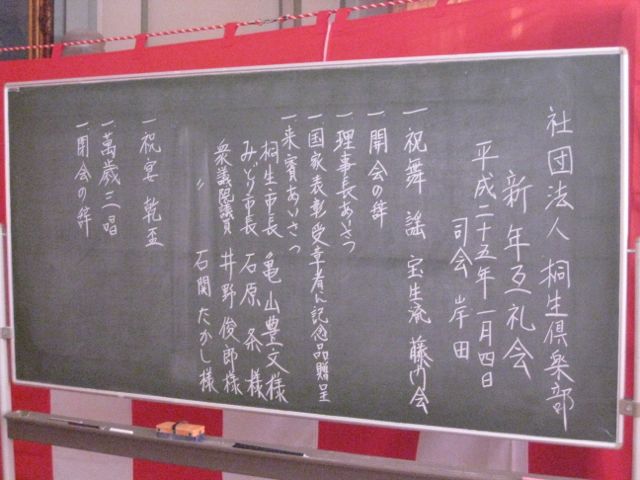 社団法人 桐生倶楽部
新年互礼会
平成二十五年一月四日
司会 岸田
一 祝舞 謡 宝生流 藤門会
一 開会の辞
一 理事長あいさつ
一 国家表彰受章者に記念品贈呈
一 来賓あいさつ
桐生市長 亀山豊文様
みどり市長 石原 条様
衆議院議員 井野俊郎様
〃 石関たかし様
一 祝宴 乾盃
一 萬歳三唱
一 閉会の辞